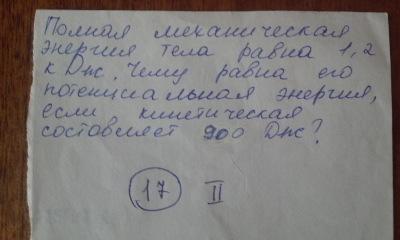 Полная механическая
энергия тела равна 1,2
кДж. Чему равна его
потенциальная энергия,
если кинетическая
составляет 900 Дж?
17 II